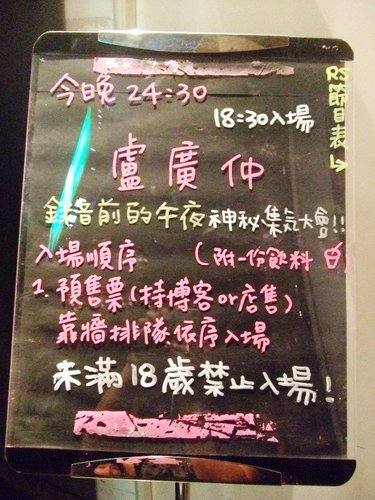 今晚24:30
18:30入場
盧廣仲
錄音前的午夜神秘集氣大會!!
入場順序 (附一份飲料)
1. 預售票(持博客or店售)
靠牆排隊依序入場
未滿18歲禁止入場!
RS節目表